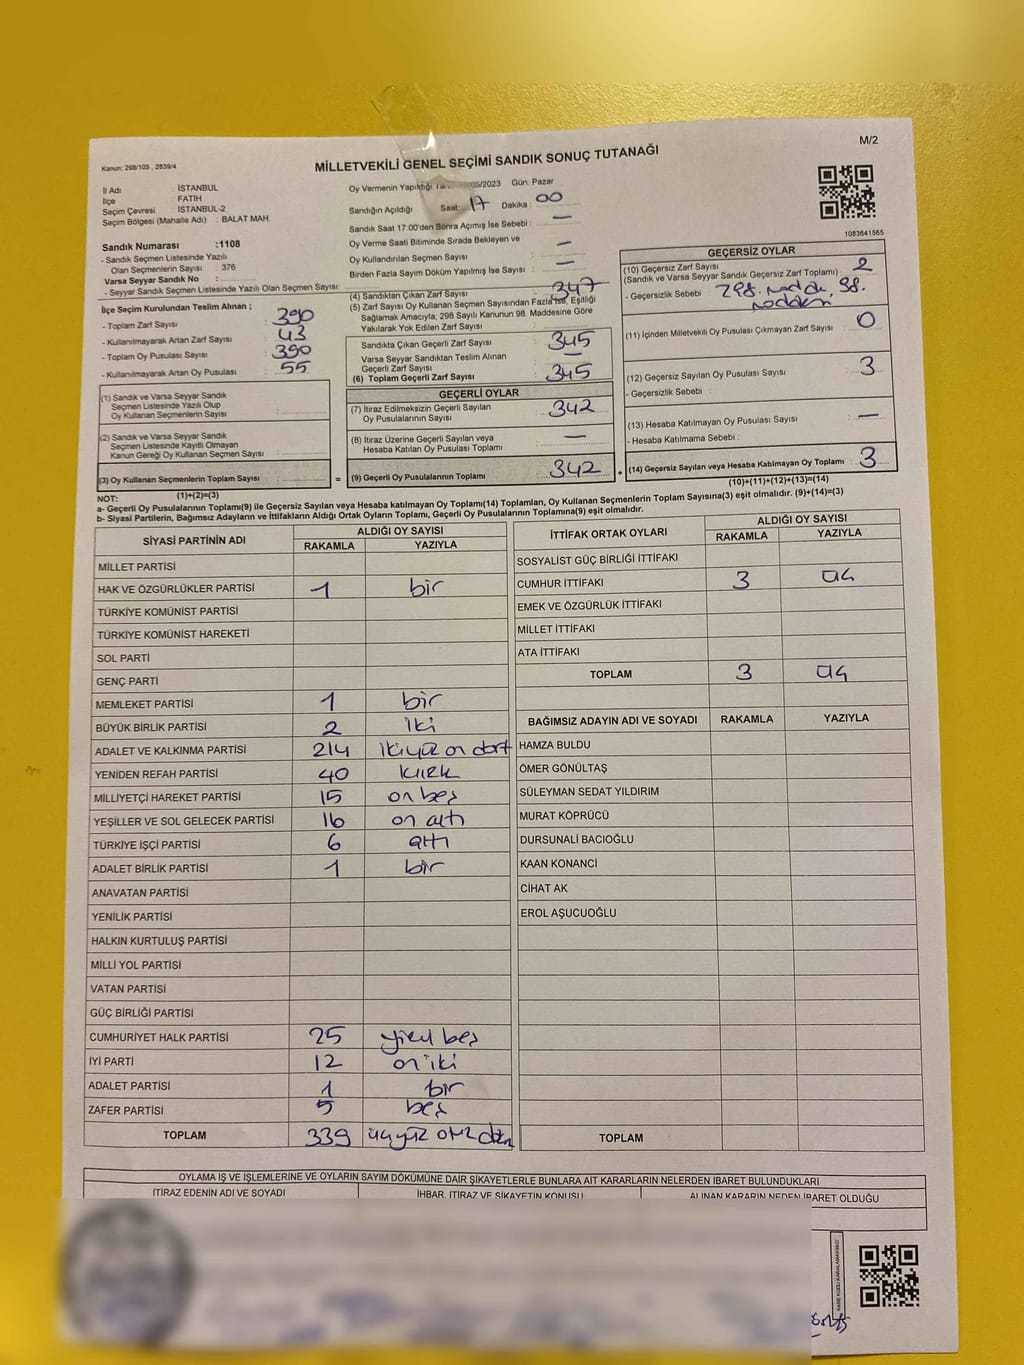 M/2
Kanun: 298/105 , 2839/4
MİLLETVEKİLİ GENEL SEÇİMİ SANDIK SONUÇ TUTANAĞI
İl Adı : İSTANBUL
İlçe : FATİH
Seçim Çevresi : İSTANBUL-2
Seçim Bölgesi (Mahalle Adı) : BALAT MAH.
Sandık Numarası :1108
- Sandık Seçmen Listesinde Yazılı
Olan Seçmenlerin Sayısı : 376
Varsa Seyyar Sandık No :
- Seyyar Sandık Seçmen Listesinde Yazılı Olan Seçmen Sayısı:
Oy Vermenin Yapıldığı /2023 Gün: Pazar
Sandığın Açıldığı Saat: 17 Dakika : 00
Sandık Saat 17:00'den Sonra Açılmış İse Sebebi : —
Oy Verme Saati Bitiminde Sırada Bekleyen ve
Oy Kullandırılan Seçmen Sayısı : —
Birden Fazla Sayım Döküm Yapılmış İse Sayısı : —
1083641565
İlçe Seçim Kurulundan Teslim Alınan ;
- Toplam Zarf Sayısı : 390
- Kullanılmayarak Artan Zarf Sayısı : 43
- Toplam Oy Pusulası Sayısı : 390
- Kullanılmayarak Artan Oy Pusulası : 55
(1) Sandık ve Varsa Seyyar Sandık
Seçmen Listesinde Yazılı Olup
Oy Kullanan Seçmenlerin Sayısı :
(2) Sandık ve Varsa Seyyar Sandık
Seçmen Listesinde Kayıtlı Olmayan
Kanun Gereği Oy Kullanan Seçmen Sayısı :
(3) Oy Kullanan Seçmenlerin Toplam Sayısı :
(1)+(2)=(3)
(4) Sandıktan Çıkan Zarf Sayısı : 347
(5) Zarf Sayısı Oy Kullanan Seçmen Sayısından Fazla İse, Eşitliği
Sağlamak Amacıyla, 298 Sayılı Kanunun 98. Maddesine Göre
Yakılarak Yok Edilen Zarf Sayısı :
Sandıkta Çıkan Geçerli Zarf Sayısı : 345
Varsa Seyyar Sandıktan Teslim Alınan
Geçerli Zarf Sayısı : —
(6) Toplam Geçerli Zarf Sayısı : 345
GEÇERLİ OYLAR
(7) İtiraz Edilmeksizin Geçerli Sayılan
Oy Pusulalarının Sayısı : 342
(8) İtiraz Üzerine Geçerli Sayılan veya
Hesaba Katılan Oy Pusulası Toplamı : —
= (9) Geçerli Oy Pusulalarının Toplamı : 342 +
GEÇERSİZ OYLAR
(10) Geçersiz Zarf Sayısı
(Sandık ve Varsa Seyyar Sandık Geçersiz Zarf Toplamı) : 2
- Geçersizlik Sebebi : 298. 98.
(11) İçinden Milletvekili Oy Pusulası Çıkmayan Zarf Sayısı : 0
(12) Geçersiz Sayılan Oy Pusulası Sayısı : 3
- Geçersizlik Sebebi :
(13) Hesaba Katılmayan Oy Pusulası Sayısı : —
- Hesaba Katılmama Sebebi :
(14) Geçersiz Sayılan veya Hesaba Katılmayan Oy Toplamı : 3
(10)+(11)+(12)+(13)=(14)
NOT:
a- Geçerli Oy Pusulalarının Toplamı(9) ile Geçersiz Sayılan veya Hesaba katılmayan Oy Toplamı(14) Toplamları, Oy Kullanan Seçmenlerin Toplam Sayısına(3) eşit olmalıdır. (9)+(14)=(3)
b- Siyasi Partilerin, Bağımsız Adayların ve İttifakların Aldığı Ortak Oyların Toplamı, Geçerli Oy Pusulalarının Toplamına(9) eşit olmalıdır.
SİYASİ PARTİNİN ADI ALDIĞI OY SAYISI
RAKAMLA YAZIYLA
MİLLET PARTİSİ
HAK VE ÖZGÜRLÜKLER PARTİSİ 1 bir
TÜRKİYE KOMÜNİST PARTİSİ
TÜRKİYE KOMÜNİST HAREKETİ
SOL PARTİ
GENÇ PARTİ
MEMLEKET PARTİSİ 1 bir
BÜYÜK BİRLİK PARTİSİ 2 iki
ADALET VE KALKINMA PARTİSİ 214 ikiyüz on dört
YENİDEN REFAH PARTİSİ 40 kırk
MİLLİYETÇİ HAREKET PARTİSİ 15 on beş
YEŞİLLER VE SOL GELECEK PARTİSİ 16 on altı
TÜRKİYE İŞÇİ PARTİSİ 6 altı
ADALET BİRLİK PARTİSİ 1 bir
ANAVATAN PARTİSİ
YENİLİK PARTİSİ
HALKIN KURTULUŞ PARTİSİ
MİLLİ YOL PARTİSİ
VATAN PARTİSİ
GÜÇ BİRLİĞİ PARTİSİ
CUMHURİYET HALK PARTİSİ 25 yirmi beş
İYİ PARTİ 12 on iki
ADALET PARTİSİ 1 bir
ZAFER PARTİSİ 5 beş
TOPLAM 339 üçyüz otuz
İTTİFAK ORTAK OYLARI ALDIĞI OY SAYISI
RAKAMLA YAZIYLA
SOSYALİST GÜÇ BİRLİĞİ İTTİFAKI
CUMHUR İTTİFAKI 3 üç
EMEK VE ÖZGÜRLÜK İTTİFAKI
MİLLET İTTİFAKI
ATA İTTİFAKI
TOPLAM 3 üç
BAĞIMSIZ ADAYIN ADI VE SOYADI RAKAMLA YAZIYLA
HAMZA BULDU
ÖMER GÖNÜLTAŞ
SÜLEYMAN SEDAT YILDIRIM
MURAT KÖPRÜCÜ
DURSUNALİ BACIOĞLU
KAAN KONANCİ
CİHAT AK
EROL AŞUCUOĞLU
TOPLAM
OYLAMA İŞ VE İŞLEMLERİNE VE OYLARIN SAYIM DÖKÜMÜNE DAİR ŞİKAYETLERLE BUNLARA AİT KARARLARIN NELERDEN İBARET BULUNDUKLARI
İTİRAZ EDENİN ADI VE SOYADI İHBAR, İTİRAZ VE ŞİKAYETİN KONUSU ALINAN KARARIN NEDEN İBARET OLDUĞU